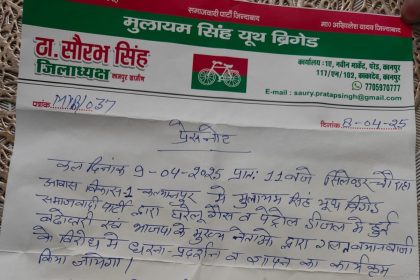 समाजवादी पार्टी जिन्दाबाद
मा० अखिलेश यादव जिन्दाबाद
मुलायम सिंह यूथ ब्रिगेड
ठा. सौरभ सिंह
जिलाध्यक्ष
कानपुर ग्रामीण
कार्यालय: 1ए, नवीन मार्केट, परेड, कानपुर
117/एन/102, काकादेव, कानपुर
7705970777
E-mail : saury.pratapsingh@gmail.com
पत्रांक MYB/037
दिनांक 8-04-25
प्रेसनोट
कल दिनांक 9-04-2025 प्रातः 11 बजे सिलेंडर चौराहा
आवास विकास-1 कल्यानपुर में मुलायम सिंह यूथ ब्रिगेड
समाजवादी पार्टी द्वारा घरेलू गैस व पेट्रोल डीजल में हुई
बढोत्तरी एवं भाजपा के मुख्य नेताओं द्वारा गलत बयानबाजी
के विरोध में धरना प्रदर्शन व ज्ञापन का कार्यक्रम
किया जायेगा।